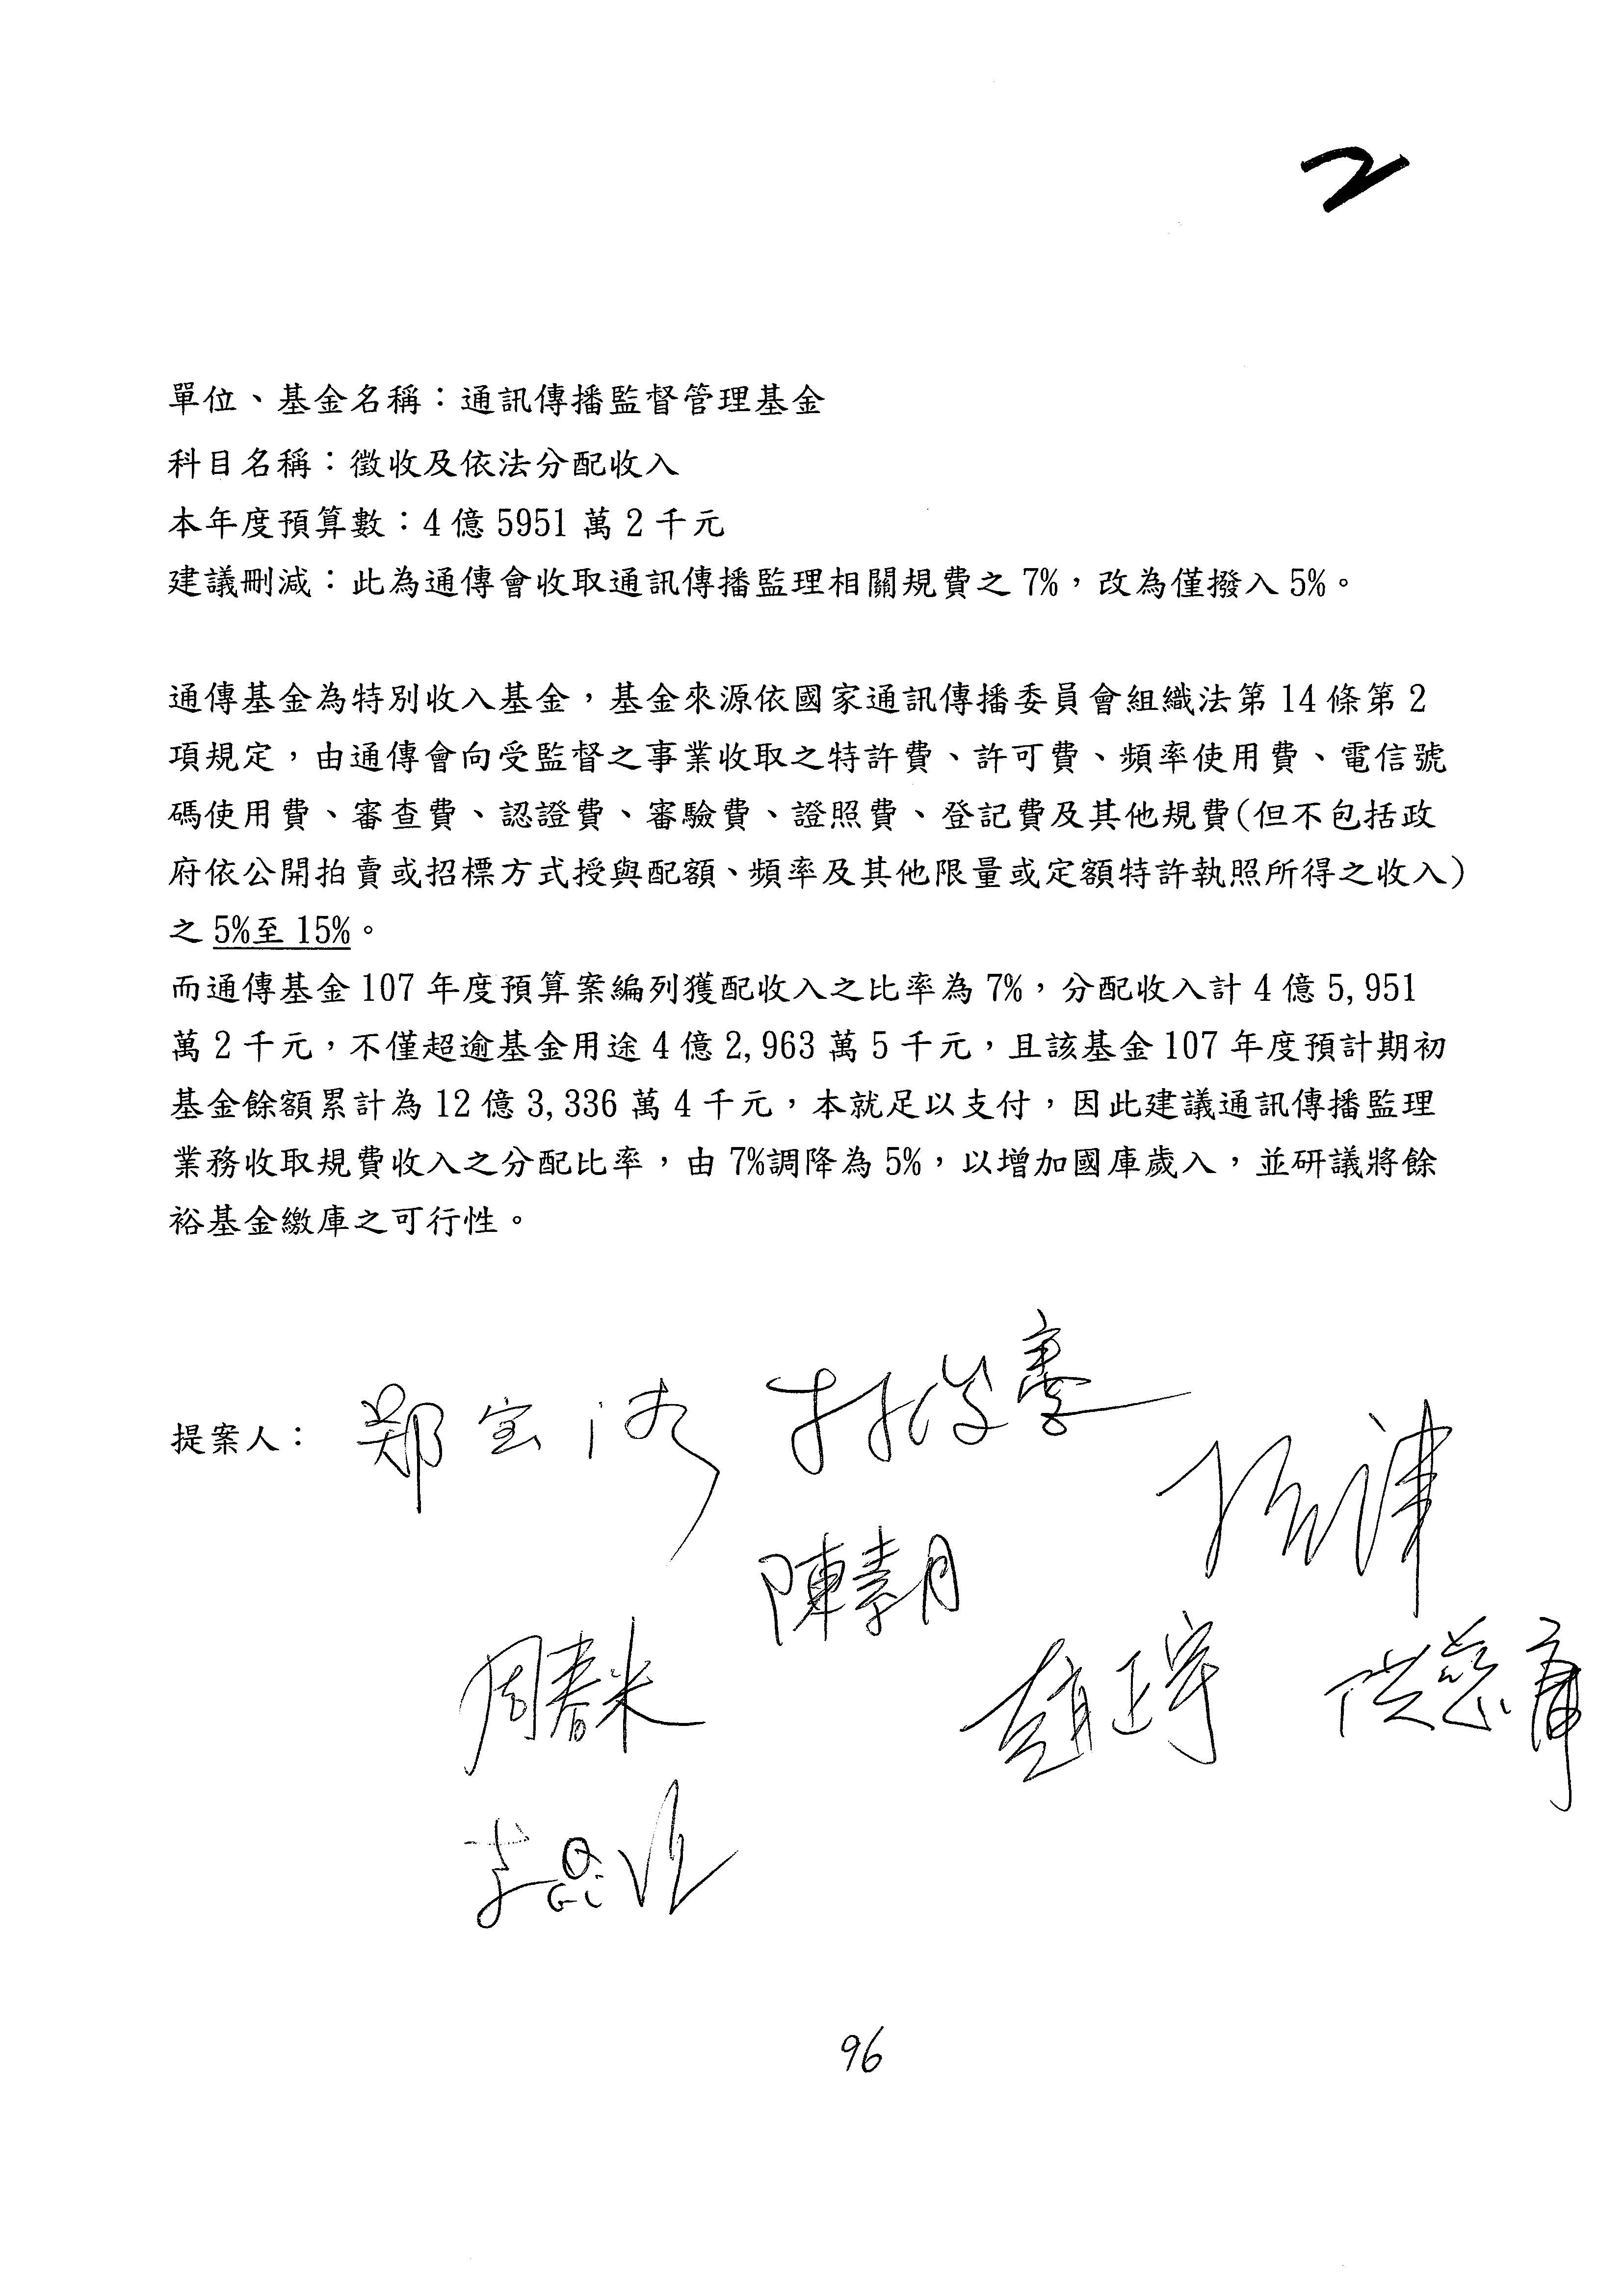 2
單位、基金名稱：通訊傳播監督管理基金
科目名稱：徵收及依法分配收入
本年度預算數：4 億 5951 萬 2 千元
建議刪減：此為通傳會收取通訊傳播監理相關規費之 7%，改為僅撥入 5%。
通傳基金為特別收入基金，基金來源依國家通訊傳播委員會組織法第 14 條第 2
項規定，由通傳會向受監督之事業收取之特許費、許可費、頻率使用費、電信號
碼使用費、審查費、認證費、審驗費、證照費、登記費及其他規費(但不包括政
府依公開拍賣或招標方式授與配額、頻率及其他限量或定額特許執照所得之收入)
之 5%至 15%。
而通傳基金 107 年度預算案編列獲配收入之比率為 7%，分配收入計 4 億 5,951
萬 2 千元，不僅超逾基金用途 4 億 2,963 萬 5 千元，且該基金 107 年度預計期初
基金餘額累計為 12 億 3,336 萬 4 千元，本就足以支付，因此建議通訊傳播監理
業務收取規費收入之分配比率，由 7%調降為 5%，以增加國庫歲入，並研議將餘
裕基金繳庫之可行性。
提案人：郑宝清 林俊憲
陳素月
周春米 趙正宇 洪慈庸
96